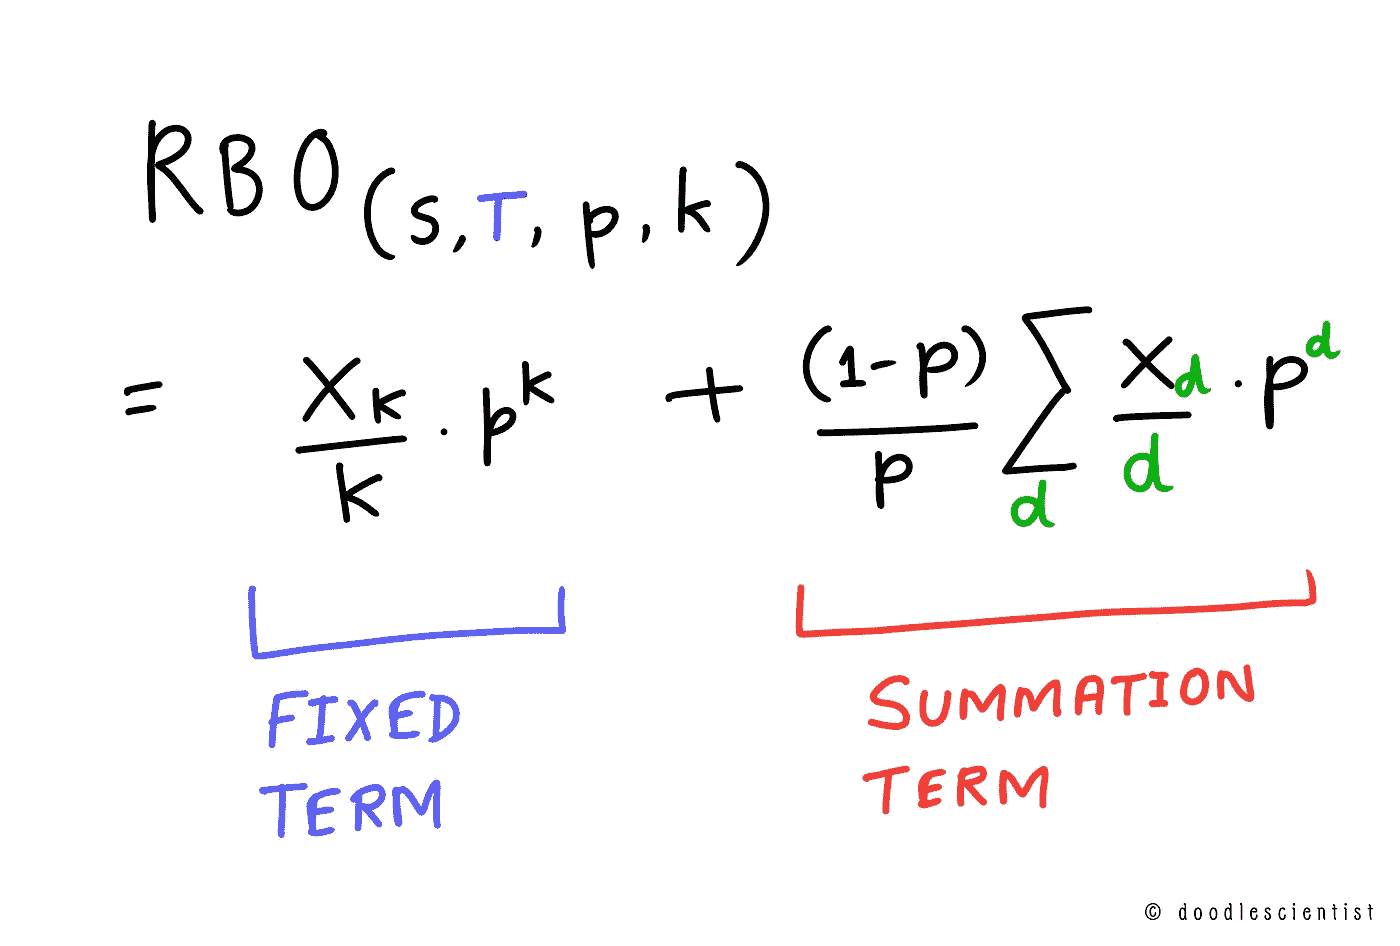 RBO(S, T, p, k)
= X_k/k · p^k + (1-p)/p ∑_d X_d/d · p^d
FIXED TERM
SUMMATION TERM
© doodlescientist